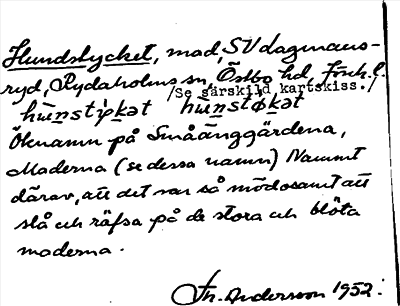 Hundstycket, mad, SV dagmans-
ryd, Rydaholms sn, Östbo hd, Jönk. l.
/Se särskild kartskiss./
hùnstỳkət hùnstøkət
Öknamn på Småänggärdena,
Maderna (se dessa namn) Namnt
därav, att det var så mödosamt att
slå och räfsa på de stora och blöta
maderna.
Th. Andersson 1952.